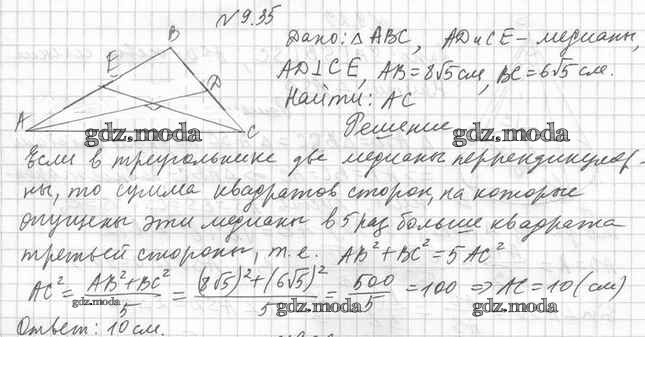 №9.35
Дано: △ABC, AD и CE – медианы,
AD⊥CE, AB=8√5 см, BC=6√5 см.
Найти: AC
B
E
D
A
C
gdz.moda
Решение
gdz.moda
Если в треугольнике две медианы перпендикуляр-
ны, то сумма квадратов сторон, на которые
опущены эти медианы в 5 раз больше квадрата
третьей стороны, т.е. AB²+BC²=5AC²
AC²= (AB²+BC²)/5 = ((8√5)²+(6√5)²)/5 = 500/5 =100 ⇒ AC=10(см)
gdz.moda
gdz.moda
Ответ: 10 см.